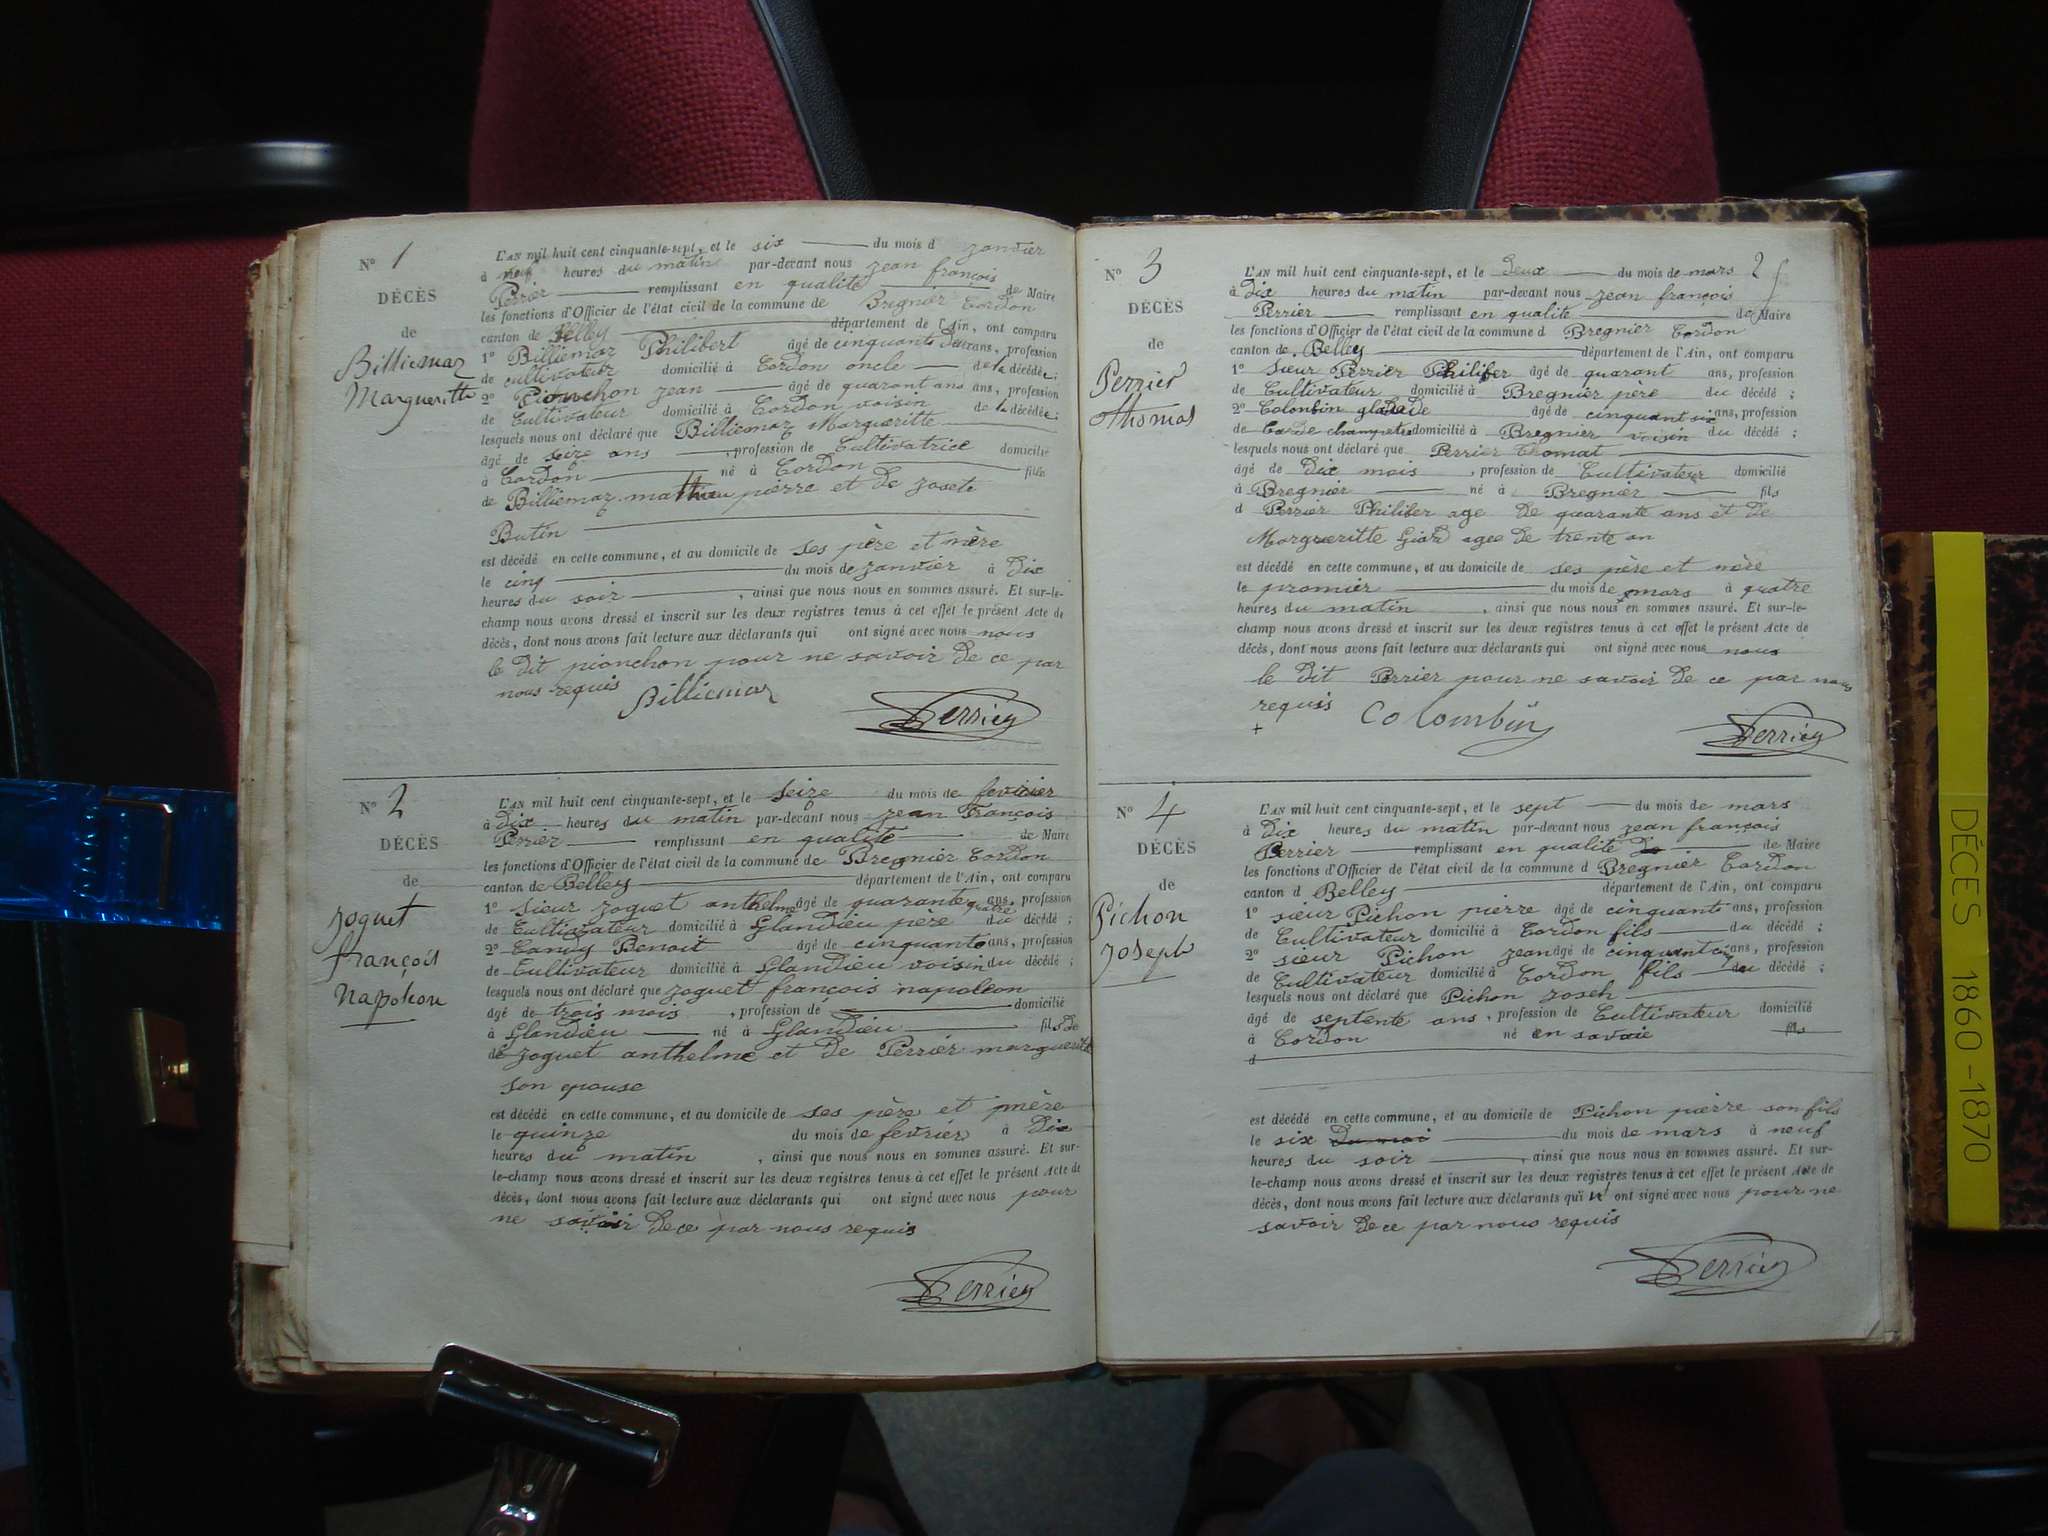 N° 1
DÉCÈS
de
Billiemaz
Margueritte
L'AN mil huit cent cinquante-sept, et le six du mois d janvier
à neuf heures du matin par-devant nous jean françois
Perrier remplissant en qualité de Maire
les fonctions d'Officier de l'état civil de la commune de Bregnier Cordon
canton de Belley département de l'Ain, ont comparu
1° Billiemaz Philibert âgé de cinquante deux ans, profession
de cultivateur domicilié à Cordon oncle de la décédée;
2° Pionchon jean âgé de quarant ans ans, profession
de Cultivateur domicilié à Cordon voisin de la décédée;
lesquels nous ont déclaré que Billiemaz Margueritte
âgé de seize ans, profession de Cultivatrice domicilié
à Cordon né à Cordon fils
de Billiemaz mathieu pierre et de josete
Butin
est décédé en cette commune, et au domicile de ses père et mère
le cinq du mois de janvier à dix
heures du soir, ainsi que nous nous en sommes assuré. Et sur-le-
champ nous avons dressé et inscrit sur les deux registres tenus à cet effet le présent Acte de
décès, dont nous avons fait lecture aux déclarants qui ont signé avec nous nous
le dit pionchon pour ne savoir de ce par
nous requis Billiemaz Perrier
N° 2
DÉCÈS
de
joguet
françois
Napoleon
L'AN mil huit cent cinquante-sept, et le seize du mois de fevrier
à dix heures du matin par-devant nous jean François
Perrier remplissant en qualité de Maire
les fonctions d'Officier de l'état civil de la commune de Bregnier Cordon
canton de Belley département de l'Ain, ont comparu
1° sieur joguet anthelme âgé de quarante quatre ans, profession
de Cultivateur domicilié à Glandieu père du décédé;
2° Candy Benoit âgé de cinquante ans, profession
de Cultivateur domicilié à Glandieu voisin du décédé;
lesquels nous ont déclaré que joguet françois napoléon
âgé de trois mois, profession de domicilié
à Glandieu né à Glandieu fils de
de joguet anthelme et de Perrier marguerite
son epouse
est décédé en cette commune, et au domicile de ses père et mère
le quinze du mois de fevrier à Dix
heures du matin, ainsi que nous nous en sommes assuré. Et sur-
le-champ nous avons dressé et inscrit sur les deux registres tenus à cet effet le présent Acte de
décès, dont nous avons fait lecture aux déclarants qui ont signé avec nous pour
ne savoir de ce par nous requis
Perrier
2
N° 3
DÉCÈS
de
Perrier
thomas
L'AN mil huit cent cinquante-sept, et le deux du mois de mars
à dix heures du matin par-devant nous jean françois
Perrier remplissant en qualité de Maire
les fonctions d'Officier de l'état civil de la commune d Bregnier Cordon
canton de Belley département de l'Ain, ont comparu
1° Sieur Perrier Philiber âgé de quarant ans, profession
de Cultivateur domicilié à Bregnier père du décédé;
2° Colonbin âgé de cinquant six ans, profession
de Garde champetre domicilié à Bregnier voisin du décédé;
lesquels nous ont déclaré que Perrier thomat
âgé de dix mois, profession de Cultivateur domicilié
à Bregnier né à Bregnier fils
d Perrier Philiber age de quarante ans et de
Morgueritte Giard agee de trente an
est décédé en cette commune, et au domicile de ses père et mère
le promier du mois de mars à quatre
heures du matin, ainsi que nous nous en sommes assuré. Et sur-le-
champ nous avons dressé et inscrit sur les deux registres tenus à cet effet le présent Acte de
décès, dont nous avons fait lecture aux déclarants qui ont signé avec nous nous
le dit Perrier pour ne savoir de ce par nous
requis Colombin Perrier
N° 4
DÉCÈS
de
Pichon
joseph
L'AN mil huit cent cinquante-sept, et le sept du mois de mars
à dix heures du matin par-devant nous jean françois
Perrier remplissant en qualité de Maire
les fonctions d'Officier de l'état civil de la commune d Bregnier Cordon
canton d Belley département de l'Ain, ont comparu
1° sieur Pichon pierre âgé de cinquante ans, profession
de Cultivateur domicilié à Cordon fils du décédé;
2° sieur Pichon jean âgé de cinquante ans, profession
de Cultivateur domicilié à Cordon fils du décédé;
lesquels nous ont déclaré que Pichon joseh
âgé de septente ans, profession de Cultivateur domicilié
à Cordon né en savoie fils
d
est décédé en cette commune, et au domicile de Pichon pierre son fils
le six du mois de mars à neuf
heures du soir, ainsi que nous nous en sommes assuré. Et sur-
le-champ nous avons dressé et inscrit sur les deux registres tenus à cet effet le présent Acte de
décès, dont nous avons fait lecture aux déclarants qui n' ont signé avec nous pour ne
savoir de ce par nous requis
Perrier
DÉCES 1860-1870